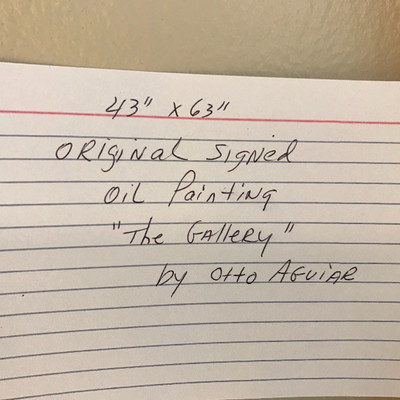 43" x 63"
Original Signed
Oil Painting
"The Gallery"
by Otto Aguiar